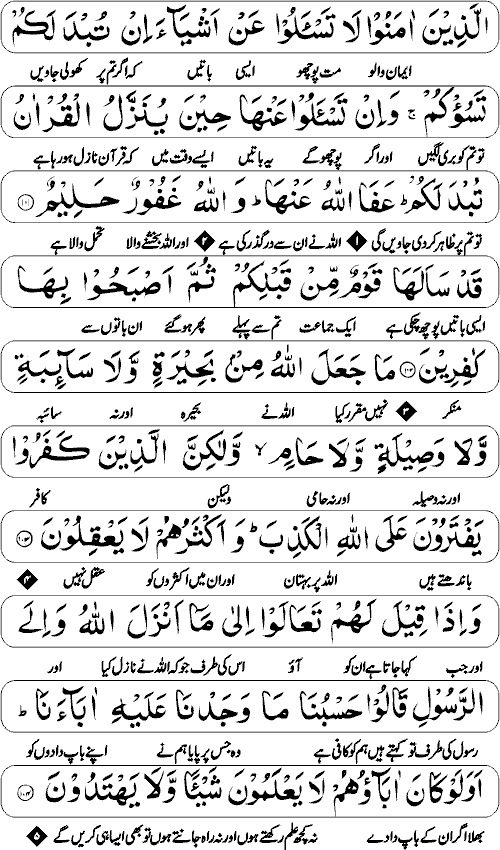 الَّذِیْنَ اٰمَنُوْا لَا تَسْـَٔلُوْا عَنْ اَشْیَآءَ اِنْ تُبْدَ لَكُمْ
ایمان والو مت پوچھو ایسی باتیں کہ اگر تم پر کھولی جاویں
تَسُؤْكُمْ ۚ وَاِنْ تَسْـَٔلُوْا عَنْهَا حِیْنَ یُنَزَّلُ الْقُرْاٰنُ
تو تم کو بری لگیں اور اگر پوچھو گے یہ باتیں ایسے وقت میں کہ قرآن نازل ہو رہا ہے
تُبْدَ لَكُمْ ؕ عَفَا اللّٰهُ عَنْهَا ؕ وَ اللّٰهُ غَفُوْرٌ حَلِیْمٌ ۝۱۰۱
تو تم پر ظاہر کر دی جاویں گی ۱ اللہ نے ان سے درگذر کی ہے ۲ اور اللہ بخشنے والا تحمل والا ہے
قَدْ سَاَلَهَا قَوْمٌ مِّنْ قَبْلِكُمْ ثُمَّ اَصْبَحُوْا بِهَا
ایسی باتیں پوچھ چکی ہے ایک جماعت تم سے پہلے پھر ہو گئے ان باتوں سے
كٰفِرِیْنَ ۝۱۰۲ مَا جَعَلَ اللّٰهُ مِنْۢ بَحِیْرَةٍ وَّلَا سَآئِبَةٍ
منکر ۳ نہیں مقرر کیا اللہ نے بحیرہ اور نہ سائبہ
وَّلَا وَصِیْلَةٍ وَّلَا حَامٍ ۙ وَّلٰكِنَّ الَّذِیْنَ كَفَرُوْا
اور نہ وصیلہ اور نہ حامی ولیکن کافر
یَفْتَرُوْنَ عَلَى اللّٰهِ الْكَذِبَ ؕ وَ اَكْثَرُهُمْ لَا یَعْقِلُوْنَ ۝۱۰۳
باندھتے ہیں اللہ پر بہتان اور ان میں اکثروں کو عقل نہیں ۴
وَ اِذَا قِیْلَ لَهُمْ تَعَالَوْا اِلٰى مَاۤ اَنْزَلَ اللّٰهُ وَ اِلَى
اور جب کہا جاتا ہے ان کو آؤ اس کی طرف جو کہ اللہ نے نازل کیا اور
الرَّسُوْلِ قَالُوْا حَسْبُنَا مَا وَجَدْنَا عَلَیْهِ اٰبَآءَنَا ؕ
رسول کی طرف تو کہتے ہیں ہم کو کافی ہے وہ جس پر پایا ہم نے اپنے باپ دادوں کو
اَوَلَوْ كَانَ اٰبَآؤُهُمْ لَا یَعْلَمُوْنَ شَیْـًٔا وَّلَا یَهْتَدُوْنَ ۝۱۰۴
بھلا اگر ان کے باپ دادے نہ کچھ علم رکھتے ہوں اور نہ راہ جانتے ہوں تو بھی ایسا ہی کریں گے ۵